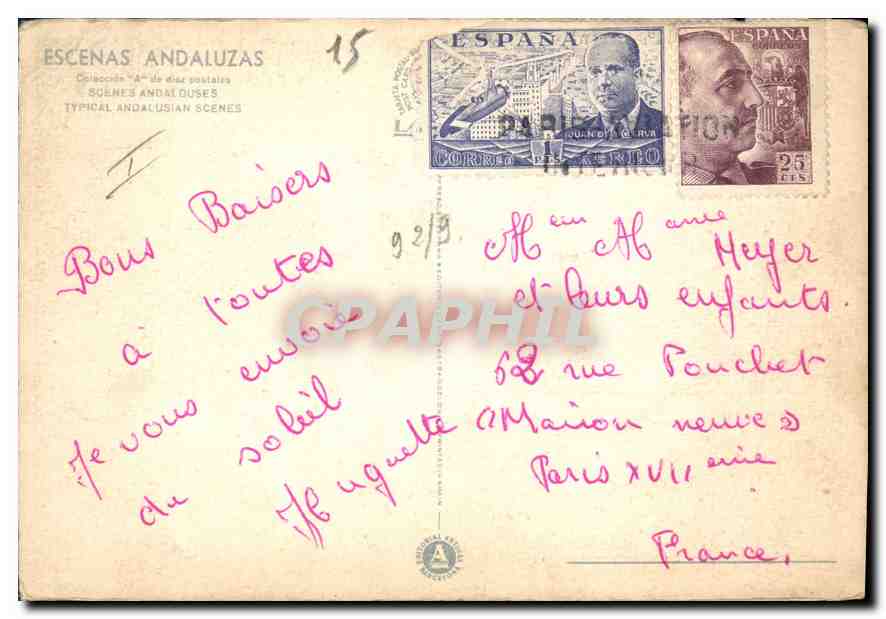 ESCENAS ANDALUZAS
Colección "A" de diez postales
SCENES ANDALOUSES
TYPICAL ANDALUSIAN SCENES
15
I
92/9.
ESPAÑA
JUAN DE LA CIERVA
1
PTS
CORREO AEREO
ESPAÑA
CORREOS
25
CTS
Bons Baisers
à toutes
Je vous envoie
du soleil
Huguette
Meyer
et leurs enfants.
rue Pouchet
"Maison neuve"
Paris XVII eme
France.
CPAPHIL
EDITORIAL ARTIGAS
BARCELONA
A